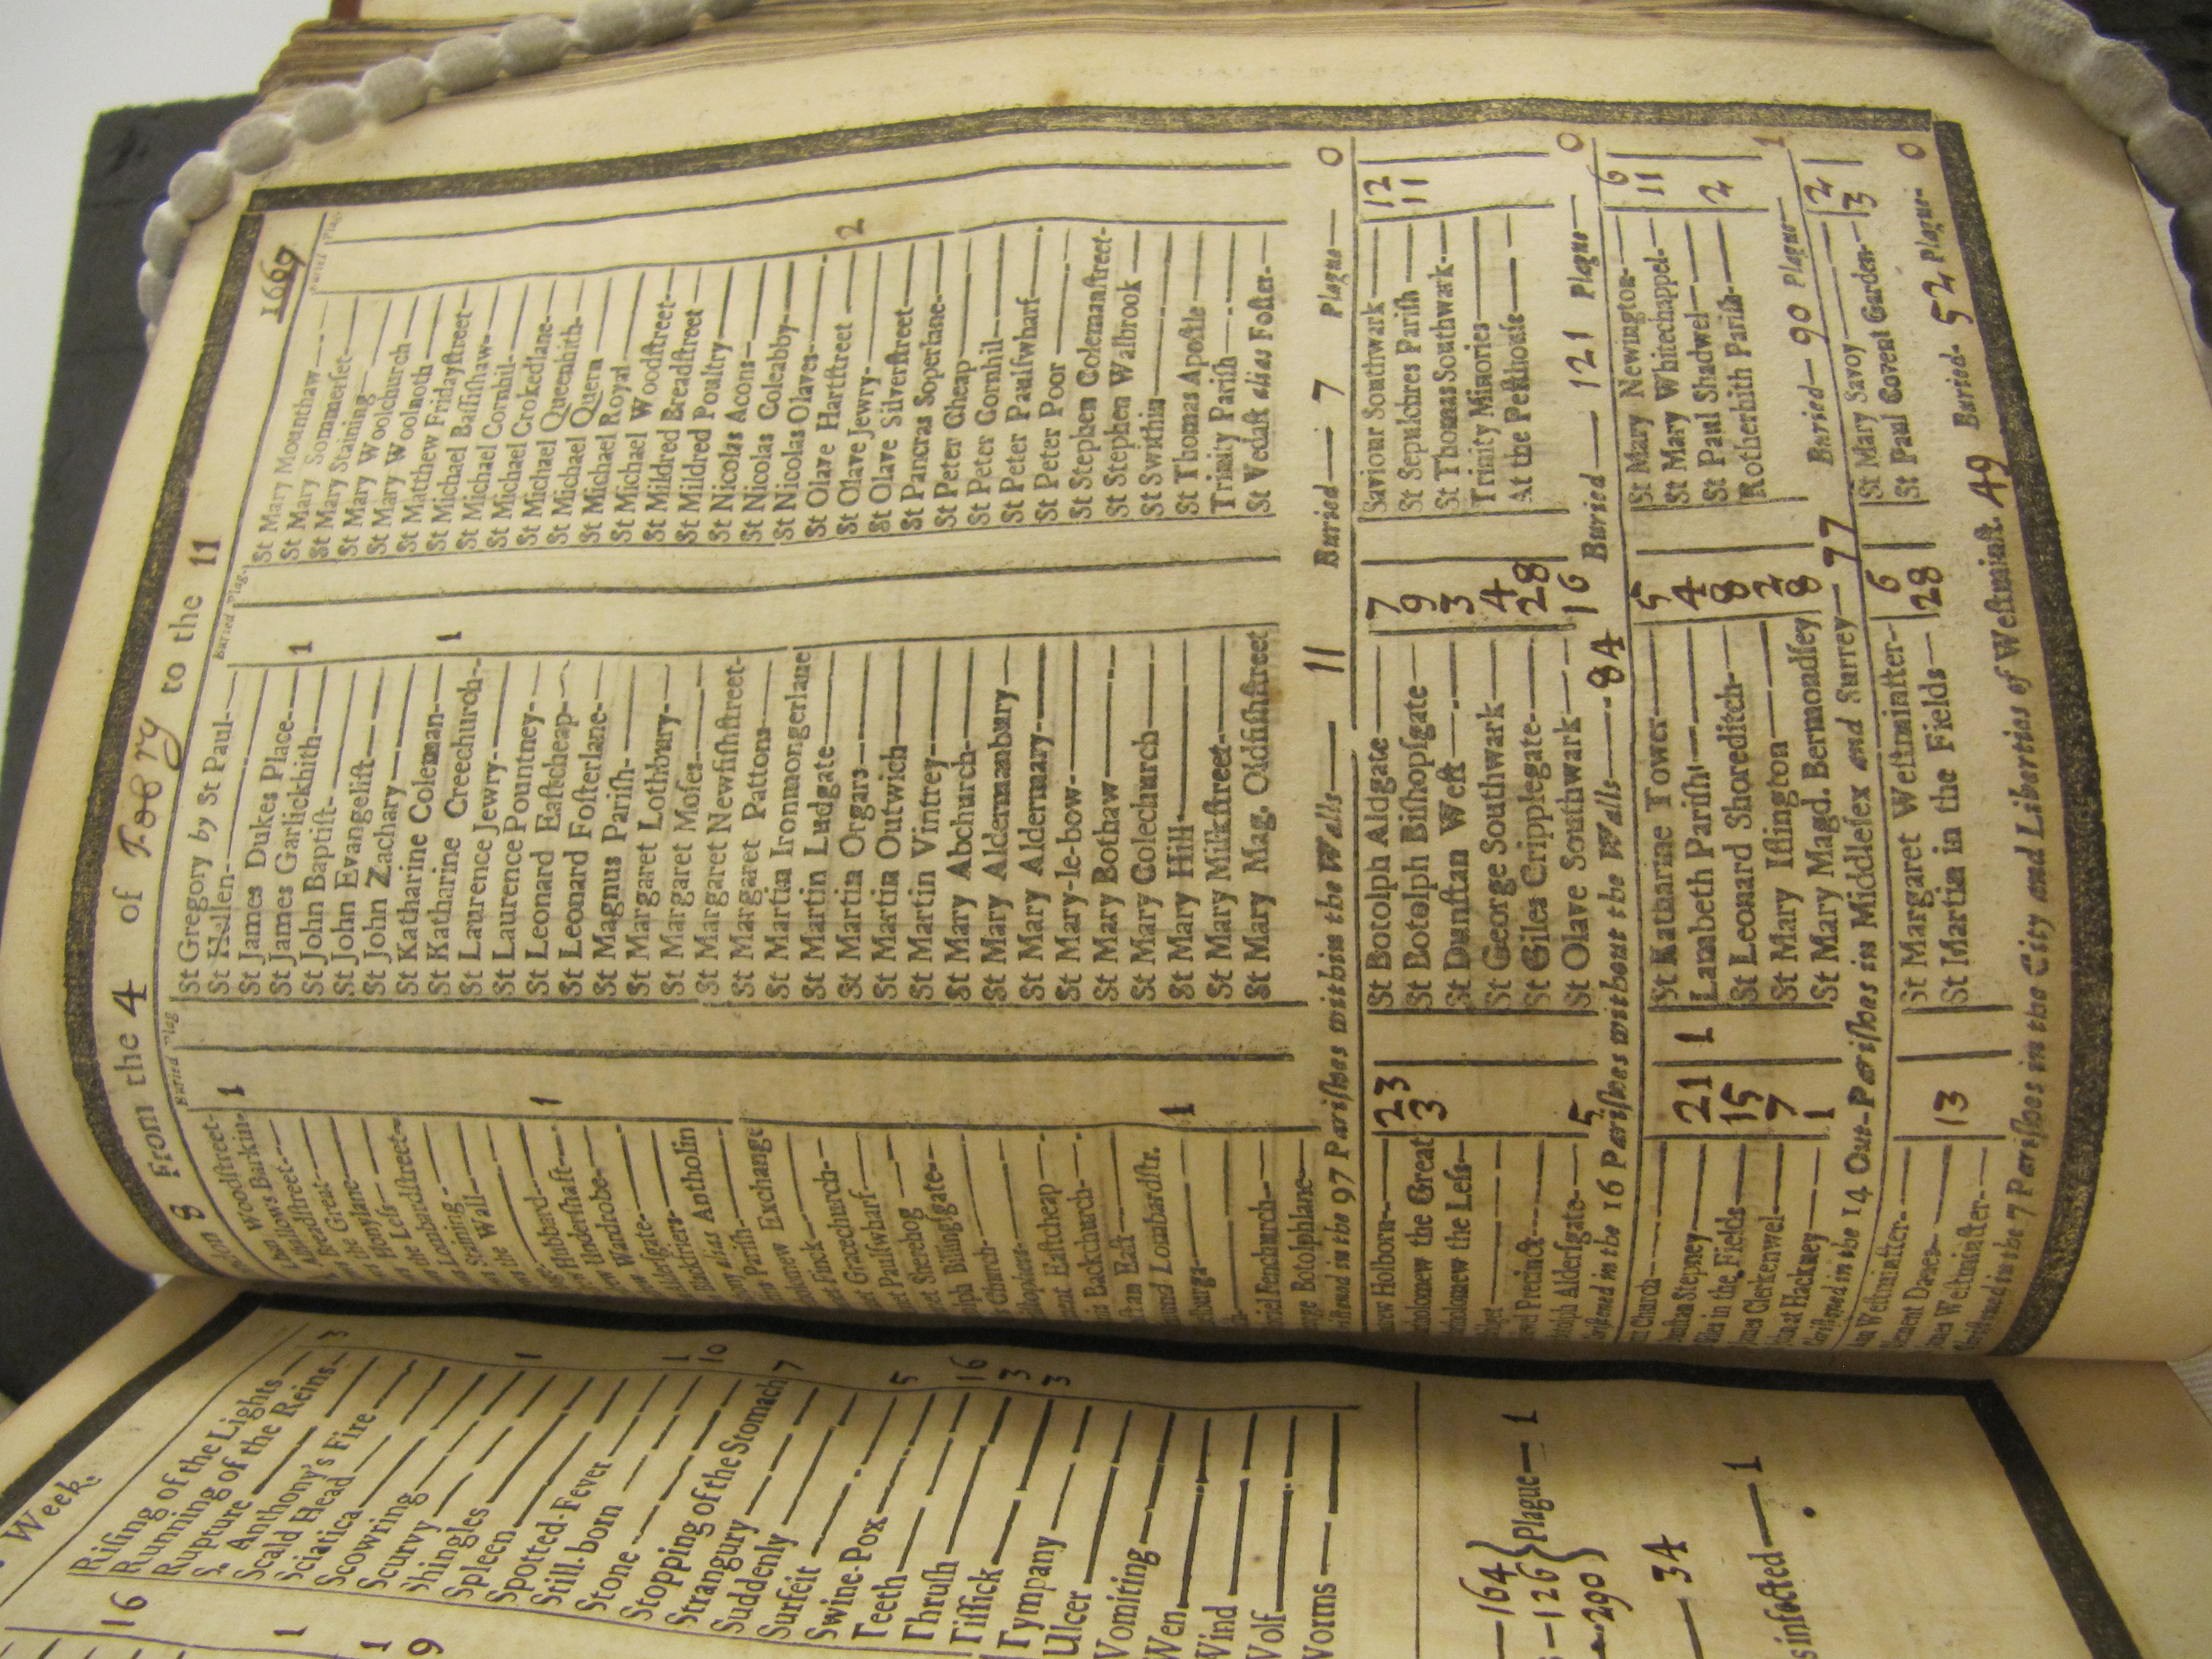 on 8 From the 4 of Febry to the 11 1667
Buried Plag
Woodstreet-
Allhallows Barkin- 1
Breadstreet
Great
Honylane
Less
Lombardstreet
Staining
the Wall
Hubbard 1
Undershaft
Wardrobe
Aldersgate
Blackfriers
alias Antholin
Parish
Exchange
Finck
Gracechurch
Paulswharf
Sherehog
Billingsgate
Church
Bishopsgate
Eastcheap
Backchurch
East
Lombardstr.
1
Fenchurch
Botolphlane
Buried Plag.
St Gregory by St Paul
St Hellen
St James Dukes Place
St James Garlickhith 1
St John Baptist
St John Evangelist
St John Zachary
St Katharine Coleman
St Katharine Creechurch 1
St Laurence Jewry
St Laurence Pountney
St Leonard Eastcheap
St Leonard Fosterlane
St Magnus Parish
St Margaret Lothbury
St Margaret Moses
St Margaret Newfishstreet
St Margaret Pattons
St Martin Ironmongerlane
St Martin Ludgate
St Martin Orgars
St Martin Outwich
St Martin Vintrey
St Mary Abchurch
St Mary Aldermanbury
St Mary Aldermary
St Mary-le-bow
St Mary Bothaw
St Mary Colechurch
St Mary Hill
St Mary Milkstreet
St Mary Mag. Oldfishstreet
Buried Plag.
St Mary Mounthaw
St Mary Sommerset
St Mary Staining
St Mary Woolchurch
St Mary Woolnoth
St Matthew Fridaystreet
St Michael Bassishaw
St Michael Cornhil
St Michael Crokedlane
St Michael Queenhith
St Michael Quern
St Michael Royal
St Michael Woodstreet
St Mildred Breadstreet
St Mildred Poultry
St Nicolas Acons
St Nicolas Coleabby
St Nicolas Olaves
St Olave Hartstreet 2
St Olave Jewry
St Olave Silverstreet
St Pancras Soperlane
St Peter Cheap
St Peter Cornhil
St Peter Paulswharf
St Peter Poor
St Stephen Colemanstreet
St Stephen Walbrook
St Swithin
St Thomas Apostle
Trinity Parish
St Vedast alias Foster
Christned in the 97 Parishes within the Walls 11 Buried 7 Plague 0
Andrew Holborn 23
Bartholomew the Great 3
Bartholomew the Less
Bridget
Bridewel Precinct
Botolph Aldersgate 5
St Botolph Aldgate 7
St Botolph Bishopsgate 9
St Dunstan West 3
St George Southwark 4
St Giles Cripplegate 28
St Olave Southwark 16
Saviour Southwark 12
St Sepulchres Parish 11
St Thomas Southwark
Trinity Minories
At the Pesthouse
Christned in the 16 Parishes without the Walls 84 Buried 121 Plague 0
Church
Dunstan Stepney 21 1
Giles in the Fields 15
James Clerkenwel 7
John at Hackney 1
St Katharine Tower 5
Lambeth Parish 4
St Leonard Shoreditch 8
St Mary Islington 2
St Mary Magd. Bermondsey 8
St Mary Newington 6
St Mary Whitechappel 11
St Paul Shadwel 2
Rotherhith Parish
Christned in the 14 Out-Parishes in Middlesex and Surrey 77 Buried 90 Plague 1
Westminster
Clement Danes 13
James Westminster
St Margaret Westminster 6
St Martin in the Fields 28
St Mary Savoy 2
St Paul Covent Garden 3
Christned in the 7 Parishes in the City and Liberties of Westminst. 49 Buried 52 Plague 0
Week.
16
1
1
9
Rising of the Lights 3
Running of the Reins
Rupture
S. Anthony's Fire
Scald Head
Sciatica
Scowring
Scurvy 1
Shingles
Spleen
Spotted-Fever 1
Still-born 10
Stone
Stopping of the Stomach 7
Strangury
Suddenly
Surfeit 5
Swine-Pox
Teeth 16
Thrush 3
Tissick 3
Tympany
Ulcer
Vomiting
Wen
Wind
Wolf
Worms
164
126 Plague 1
290
34
infected 1